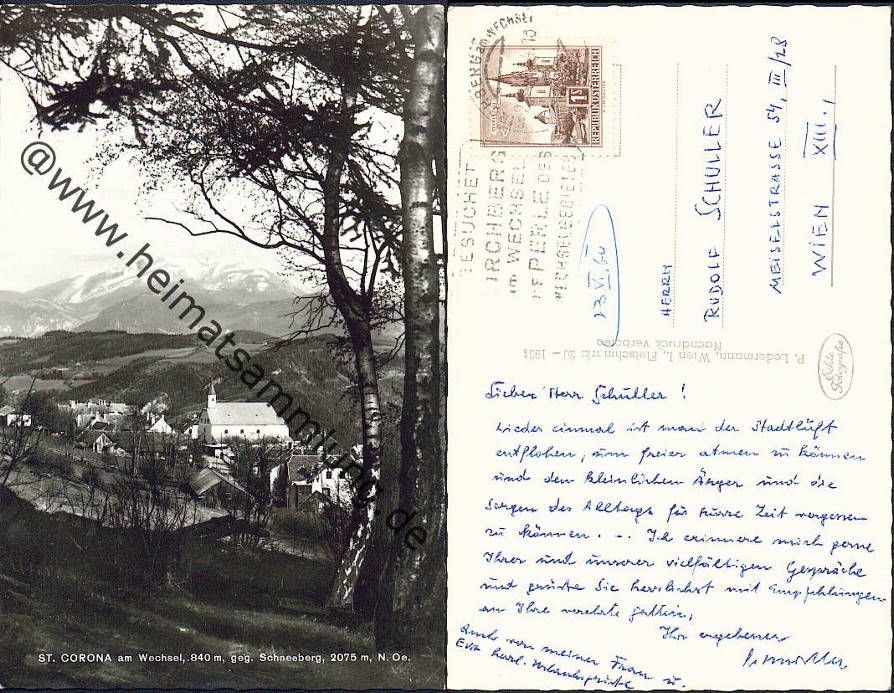 @www.heimatsammlung.de
ST. CORONA am Wechsel, 840 m, geg. Schneeberg, 2075 m, N. Oe.
REPUBLIK ÖSTERREICH
BESUCHET
KIRCHBERG
am WECHSEL
DIE PERLE DES
WECHSELGEBIETES
23 VI. 64
HERRN
RUDOLF SCHULLER
MEISELSTRASSE 54, III/28
WIEN XIII.,
P. Ledermann, Wien I., Fleischmarkt 20 – 1934
Nachdruck verboten
Echte
Fotografie
Lieber Herr Schuller!
Wieder einmal ist man der Stadtluft
entflohen, um freier atmen zu können
und den kleinlichen Ärger und die
Sorgen des Alltags für kurze Zeit vergessen
zu können. .. Ich erinnere mich gerne
Ihrer und unserer vielfältigen Gespräche
und grüsse Sie herzlichst mit Empfehlungen
an Ihre verehrte Gattin,
Ihr ergebener
Auch von meiner Frau u.
Eva herzl. Urlaubsgrüsse